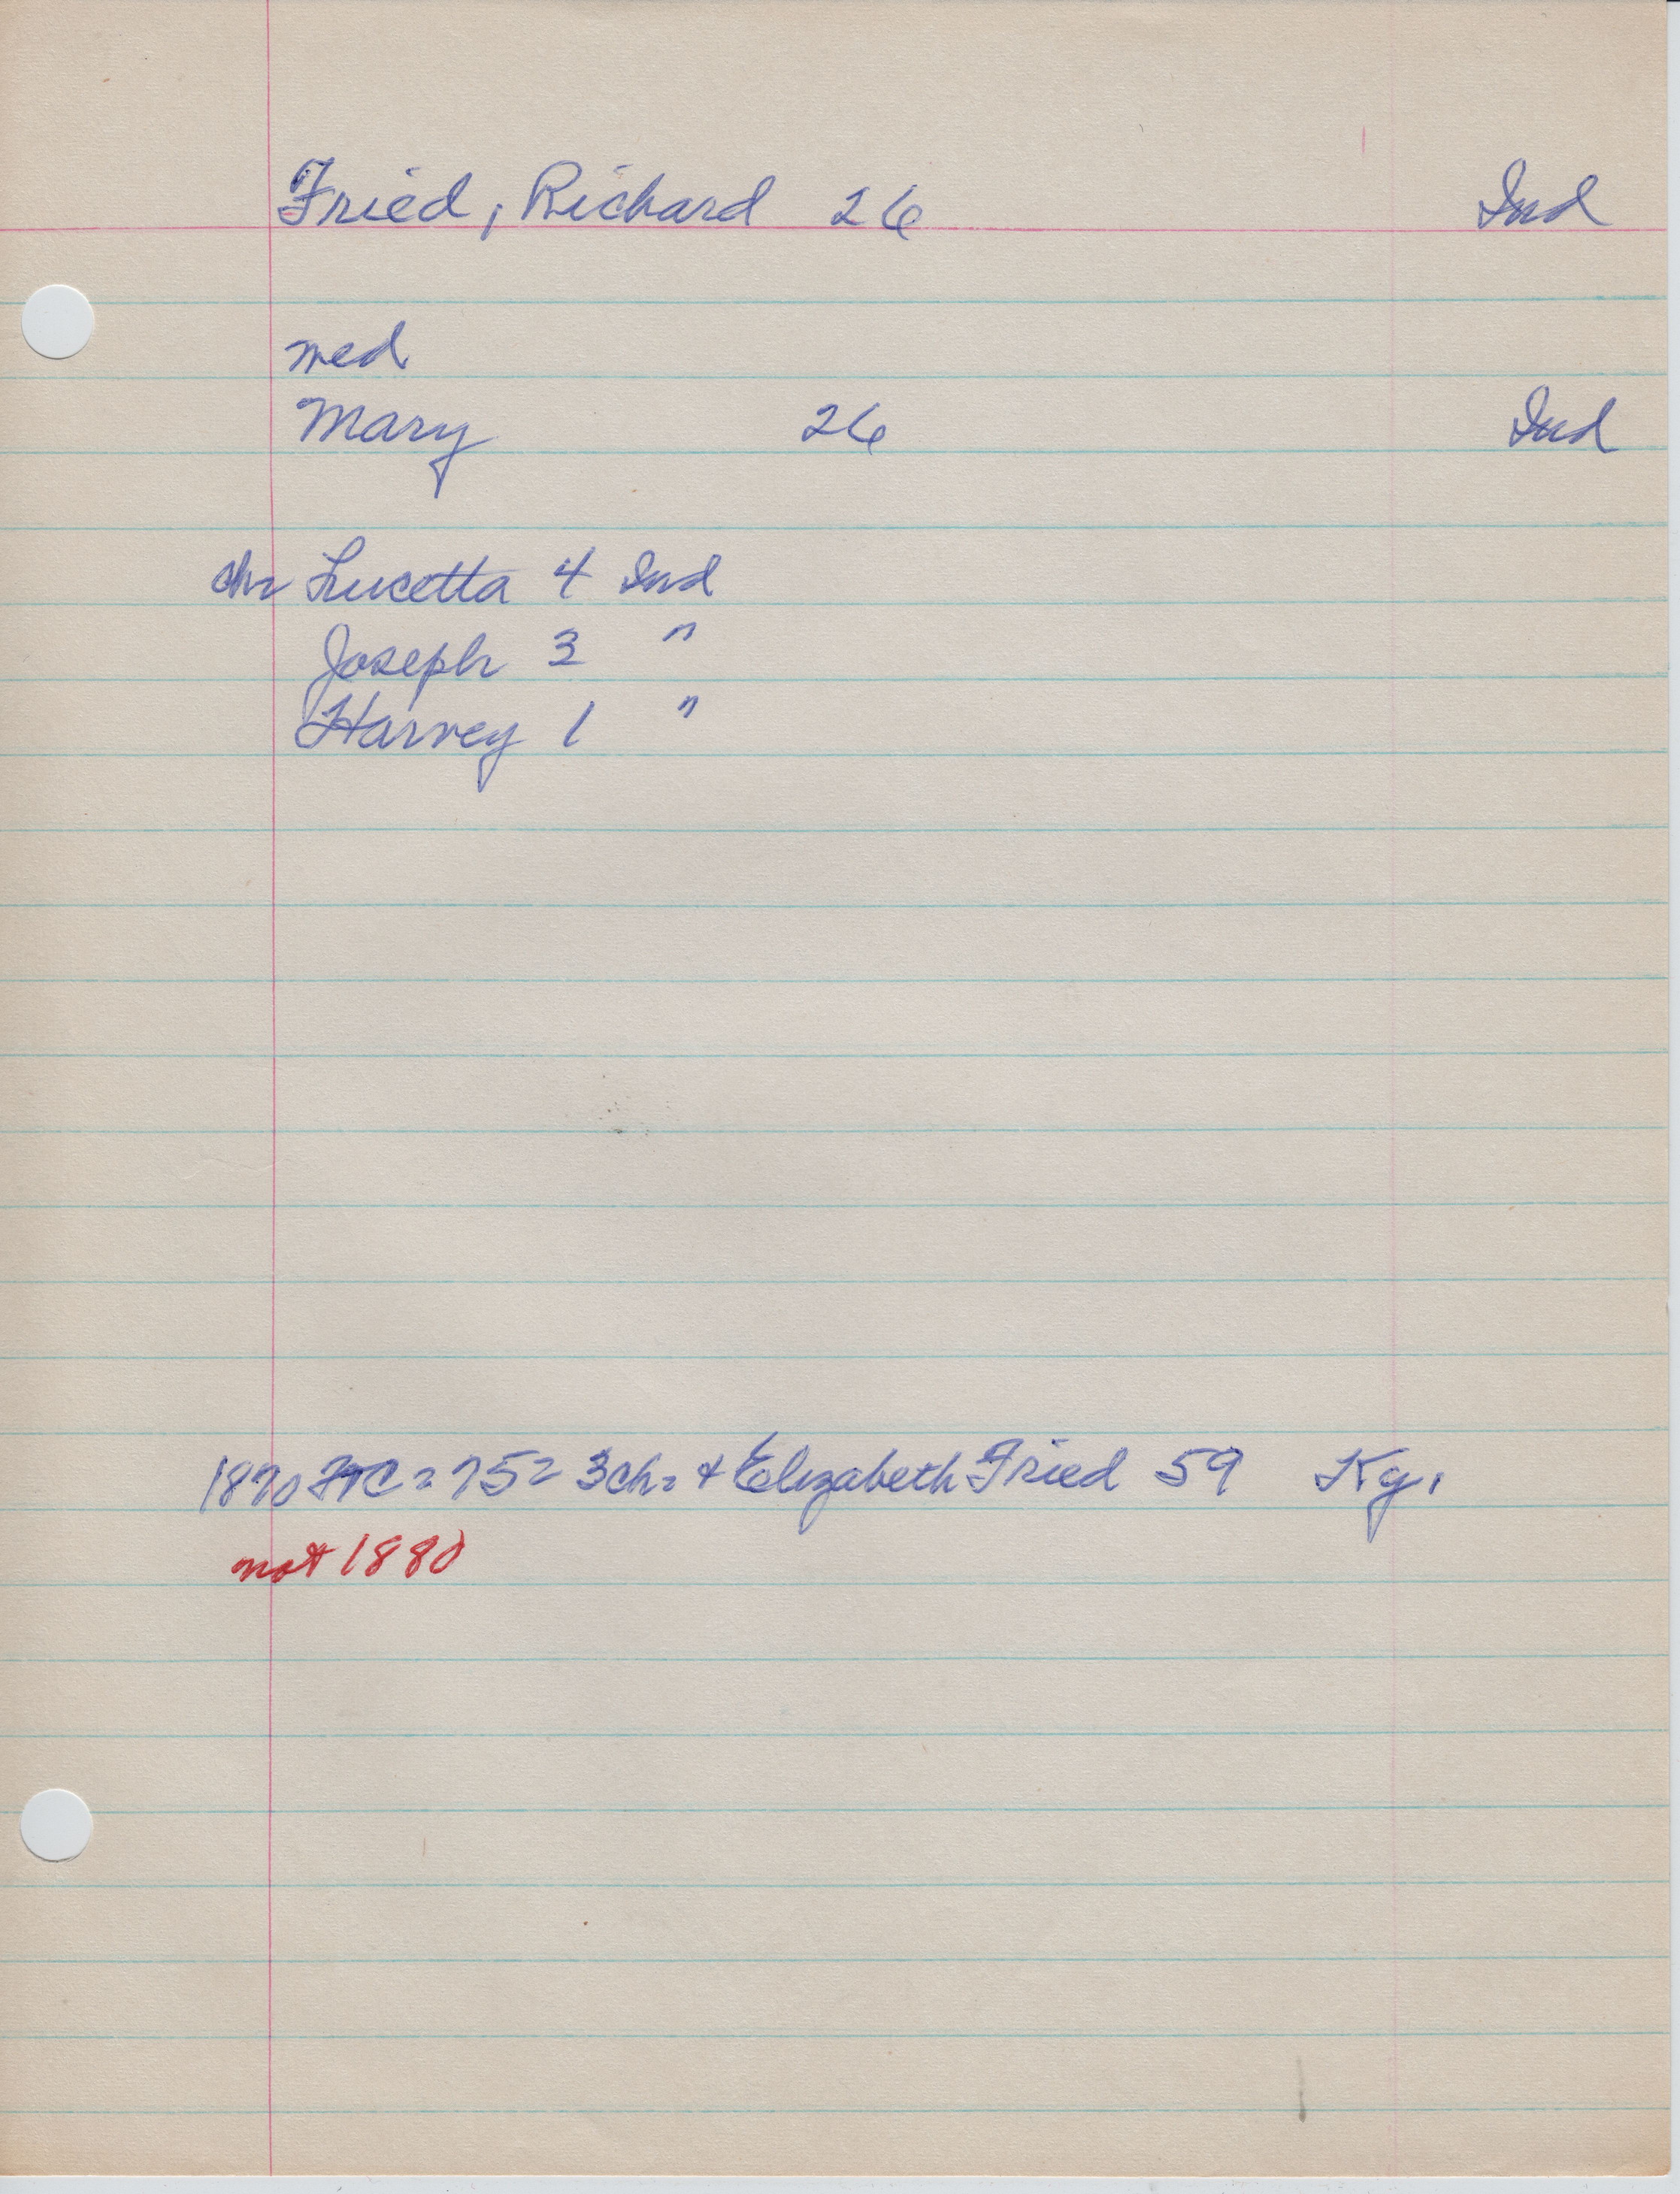 Fried, Richard 26 Ind
med
Mary 26 Ind
ch- Lucetta 4 Ind
Joseph 3 "
Harvey 1 "
1870 FTC = 75 = 3 ch = + Elizabeth Fried 59 Ky.
not 1880